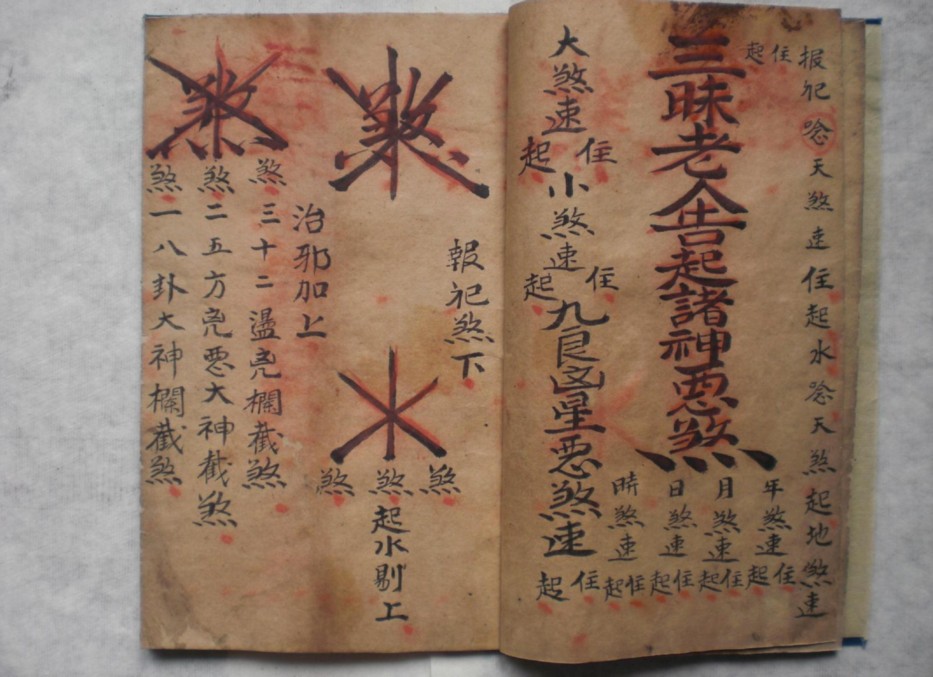 报犯唸天煞速住起水唸天煞起地煞速
住起
三昧老人告起諸神悪煞
年煞速住起
月煞速住起
日煞速住起
時煞速住起
大煞速住起小煞速住起九良凶星悪煞速住起
報犯煞下
煞
煞煞煞
起水剔上
治邪加上
煞
煞三十二盪兇欄截煞
煞二五方兇悪大神截煞
煞一八卦大神欄截煞